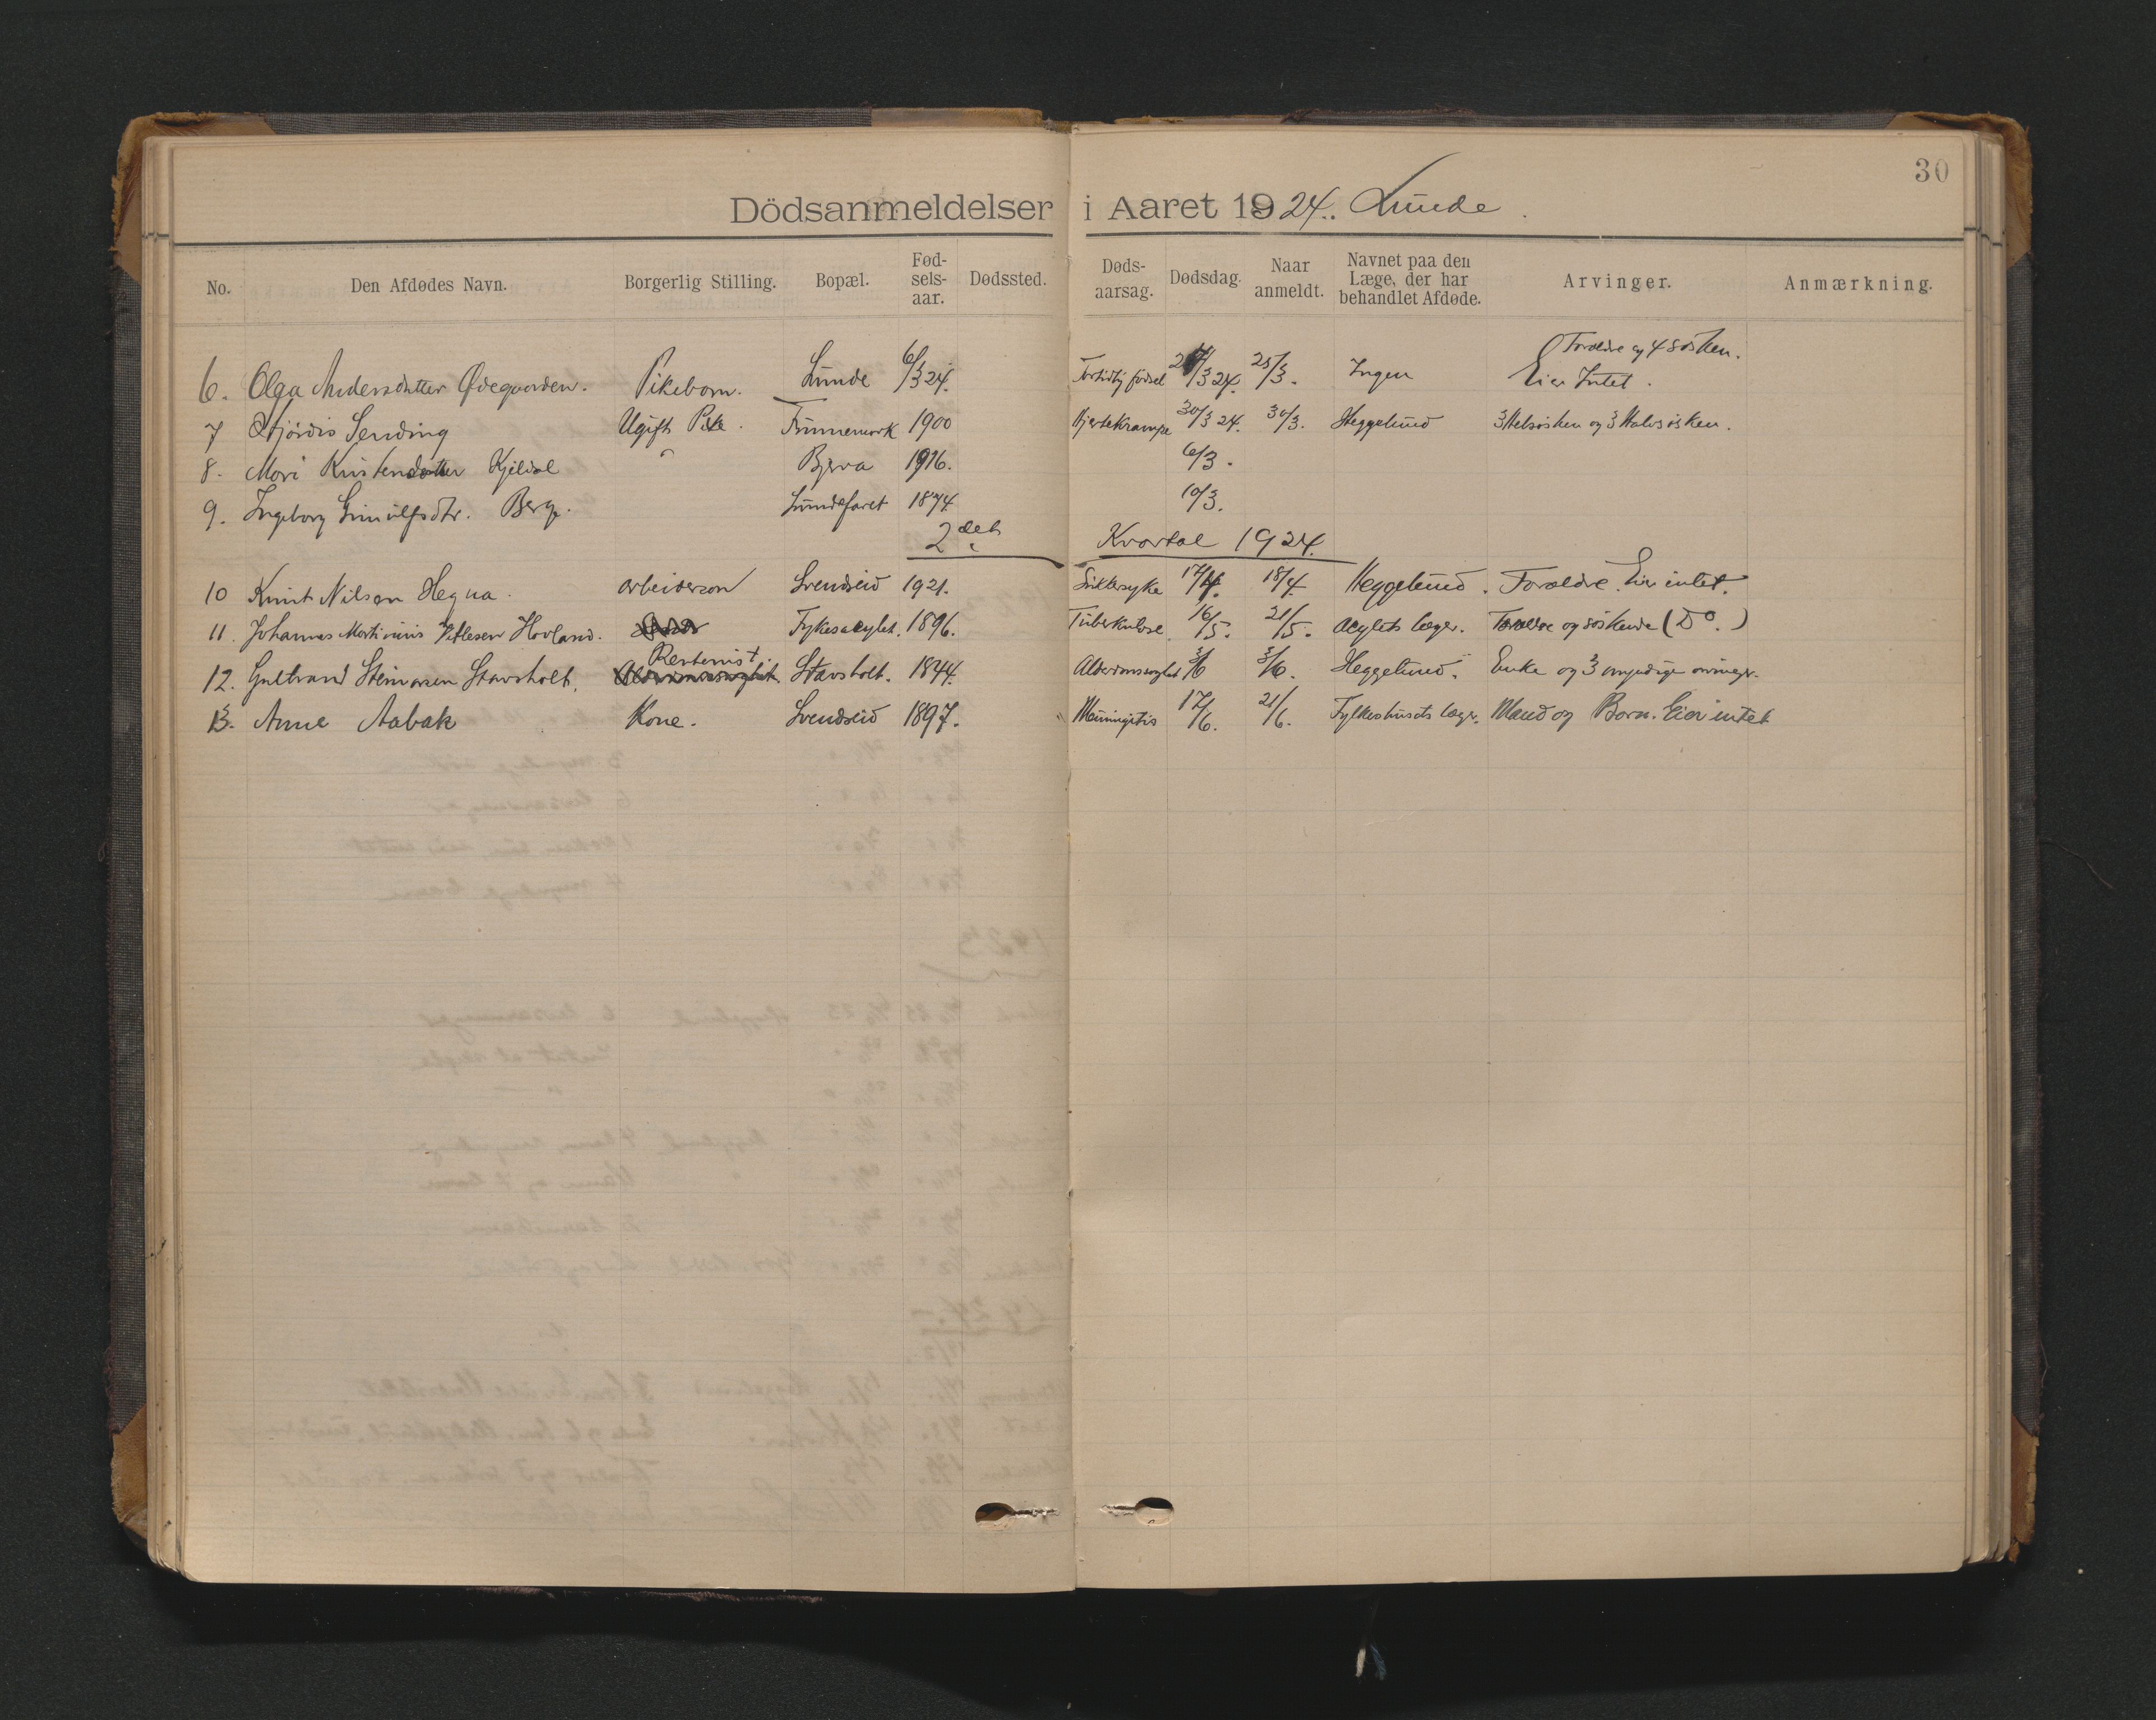 30
Dödsanmeldelser i Aaret 1924. Lunde.
No. Den Afdødes Navn. Borgerlig Stilling. Bopæl. Fød-sels-aar. Dødssted. Døds-aarsag. Dødsdag. Naar anmeldt. Navnet paa den Læge, der har behandlet Afdøde. Arvinger. Anmærkning.
Forældre og 4 søsken.
6. Olga Andersdatter Ødegaarden. Pikebarn. Lunde 6/3 24. Fortidlig fødsel /3 24. 25/3. Ingen Eier Intet.
7 Hjördis Sending Ugift Pike. Finnemork 1900 Hjertekrampe 30/3 24. 30/3. Heggelund 3 Helsøsken og 3 Halvsøsken.
8. Mari Kristensdatter Kjeldal " Bjerva 1916. 6/3.
9. Ingeborg Gunulfsdtr. Berge. Lundefaret 1874. 10/3.
2det Kvartal 1924.
10 Knut Nilsen Hegna. arbeiderson Svendseid 1921. Sukkersyke 17/4. 18/4. Heggelund. Forældre. Eier intet.
11. Johannes Martinius Detlesen Hovland. Fykesasylet. 1896. Tuberkulose 16/5. 21/5. Asylets læge. Forældre og søskende (Do.)
Rentenist.
12. Gultrand Steinarsen Stavsholt. Stavsholt. 1844. Alderdomssvaghet 3/6 3/6. Heggelund. Enke og 3 myndige arvinger.
13. Anne Aabak Kone. Svendseid 1897. Meningitis 17/6. 21/6. Fylkeshusets læge. Mand og Barn. Eier intet